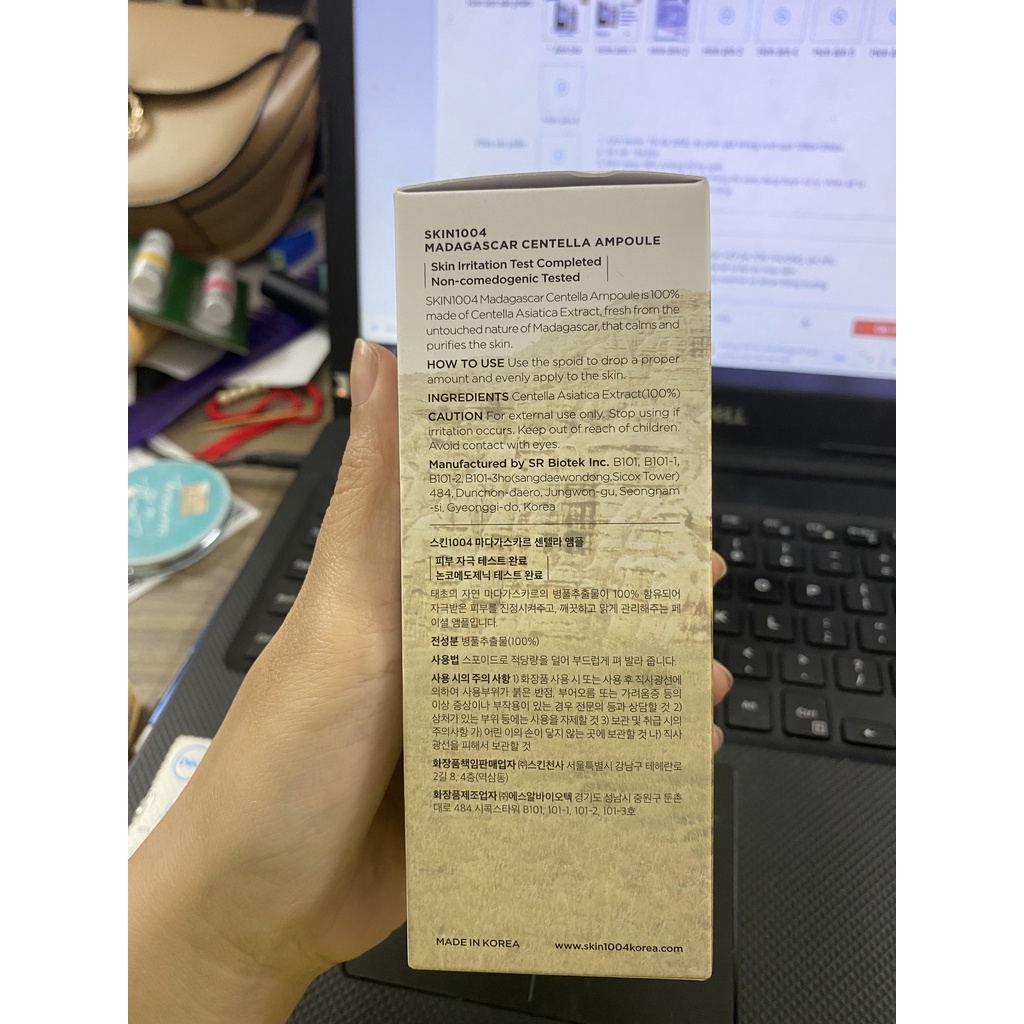 SKIN1004
MADAGASCAR CENTELLA AMPOULE
Skin Irritation Test Completed
Non-comedogenic Tested
SKIN1004 Madagascar Centella Ampoule is 100%
made of Centella Asiatica Extract, fresh from the
untouched nature of Madagascar, that calms and
purifies the skin.
HOW TO USE Use the spoid to drop a proper
amount and evenly apply to the skin.
INGREDIENTS Centella Asiatica Extract(100%)
CAUTION For external use only. Stop using if
irritation occurs. Keep out of reach of children.
Avoid contact with eyes.
Manufactured by SR Biotek Inc. B101, B101-1,
B101-2, B101-3ho(sangdaewondong,Sicox Tower)
484, Dunchon-daero, Jungwon-gu, Seongnam
-si, Gyeonggi-do, Korea
스킨1004 마다가스카르 센텔라 앰플
피부 자극 테스트 완료
논코메도제닉 테스트 완료
태초의 자연 마다가스카르의 병풀추출물이 100% 함유되어
자극받은 피부를 진정시켜주고, 깨끗하고 맑게 관리해주는 페
이셜 앰플입니다.
전성분 병풀추출물(100%)
사용법 스포이드로 적당량을 덜어 부드럽게 펴 발라 줍니다.
사용 시의 주의 사항 1) 화장품 사용 시 또는 사용 후 직사광선에
의하여 사용부위가 붉은 반점, 부어오름 또는 가려움증 등의
이상 증상이나 부작용이 있는 경우 전문의 등과 상담할 것 2)
상처가 있는 부위 등에는 사용을 자제할 것 3) 보관 및 취급 시의
주의사항 가) 어린 이의 손이 닿지 않는 곳에 보관할 것 나) 직사
광선을 피해서 보관할 것
화장품책임판매업자 ㈜스킨천사 서울특별시 강남구 테헤란로
2길 8, 4층(역삼동)
화장품제조업자 ㈜에스알바이오텍 경기도 성남시 중원구 둔촌
대로 484 시콕스타워 B101, 101-1, 101-2, 101-3호
MADE IN KOREA
www.skin1004korea.com
DELL
Ctrl